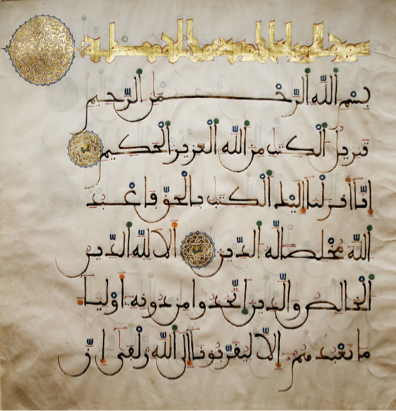 بِسْمِ اللّٰهِ الرَّحْمَنِ الرَّحِيمِ
تَنزِيلُ الْكِتَبِ مِنَ اللّٰهِ الْعَزِيزِ الْحَكِيمِ
إِنَّا أَنزَلْنَا إِلَيْكَ الْكِتَبَ بِالْحَقِّ فَاعْبُدِ
اللّٰهَ مُخْلِصًا لَهُ الدِّينَ أَلَا لِلّٰهِ الدِّينُ
الْخَالِصُ وَالَّذِينَ اتَّخَذُوا مِن دُونِهِ أَوْلِيَاءَ
مَا نَعْبُدُهُمْ إِلَّا لِيُقَرِّبُونَا إِلَى اللّٰهِ زُلْفَى إِنَّ